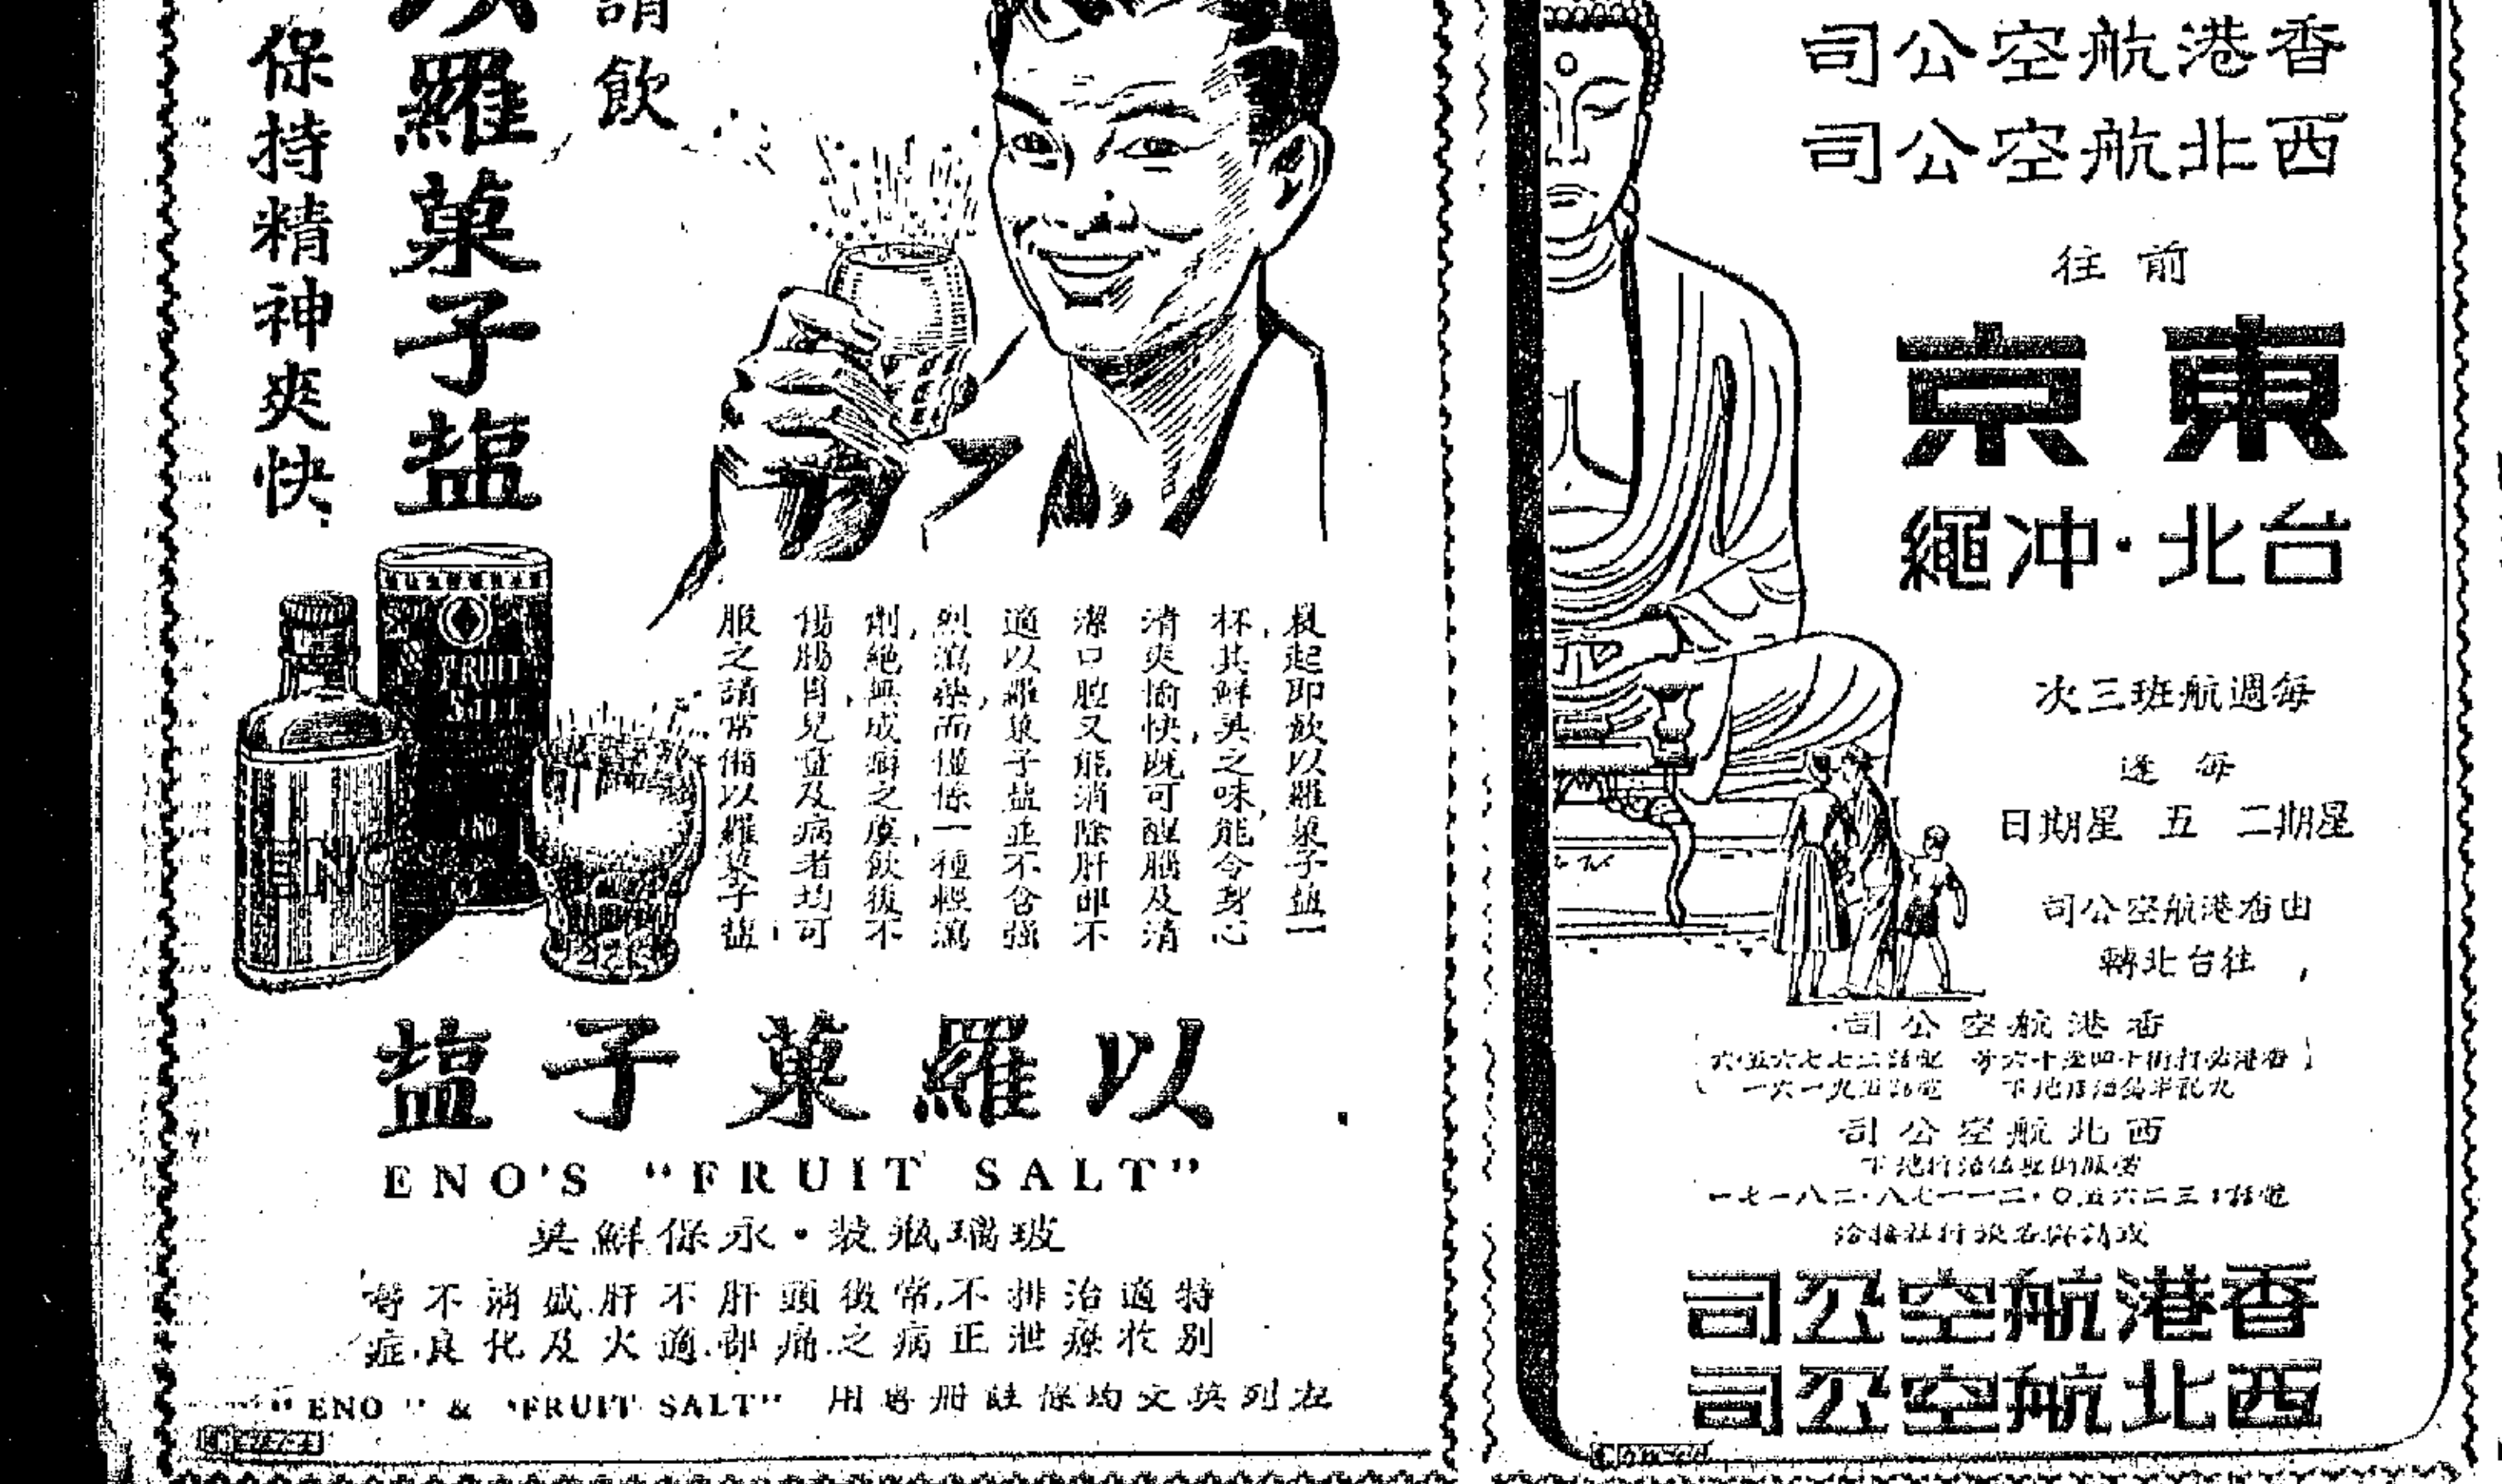 請飲
以羅菓子盐
保持精神爽快
晨起即飲以羅菓子盐一
杯,其鮮美之味,能令身心
清爽愉快,既可醒腦及清
潔口腔又能消除肝部不
適,以羅菓子盐並不含强
烈瀉藥,而僅係一種輕瀉
劑,絕無成癖之虞,飲後不
傷腸胃,兒童及病者均可
服之,請常備以羅菓子盐
FRUIT SALT
ENO
ENO
以羅菓子盐
ENO'S "FRUIT SALT"
玻璃瓶裝·永保鮮美
特別適於治療排泄不正常病後之頭痛肝部不適肝火盛及消化不良等症
左列英文均係註冊專用 "ENO" & "FRUIT SALT"
香港航空公司
西北航空公司
前往
東京
台北·冲繩
每週航班三次
每逢
星期二 五 星期日
由香港航空公司
往台北轉
香港航空公司
西北航空公司
香港航空公司
西北航空公司